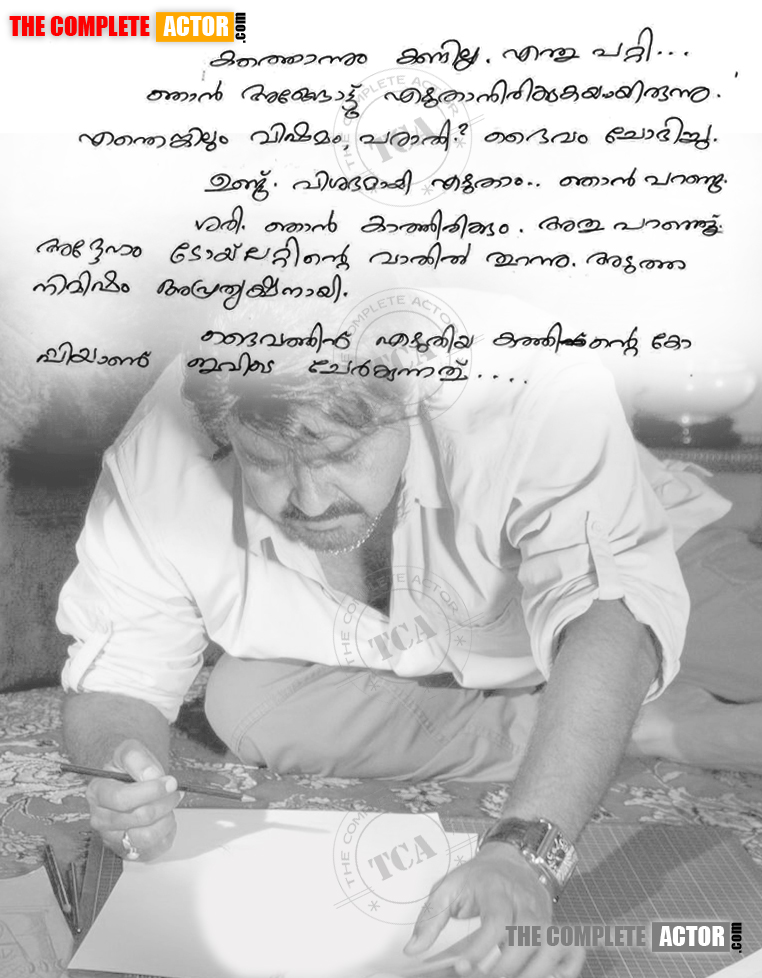 THE COMPLETE ACTOR.com
കത്തൊന്നും കണ്ടില്ല. എന്തു പറ്റി...
ഞാൻ അങ്ങോട്ട് എഴുതാനിരിക്കുകയായിരുന്നു.
എന്തെങ്കിലും വിഷമം, പരാതി? ദൈവം ചോദിച്ചു.
ഉണ്ട്. വിശദമായി എഴുതാം.. ഞാൻ പറഞ്ഞു.
ശരി. ഞാൻ കാത്തിരിക്കും. അതു പറഞ്ഞ്
അദ്ദേഹം ടോയ്‌ലറ്റിന്റെ വാതിൽ തുറന്നു. അടുത്ത
നിമിഷം അപ്രത്യക്ഷനായി.
ദൈവത്തിന് എഴുതിയ കത്തിന്റെ കോ
പ്പിയാണ് ഇവിടെ ചേർക്കുന്നത്....
THE COMPLETE ACTOR
TCA
THE COMPLETE ACTOR
TCA
THE COMPLETE ACTOR
TCA
THE COMPLETE ACTOR
TCA
THE COMPLETE ACTOR.com